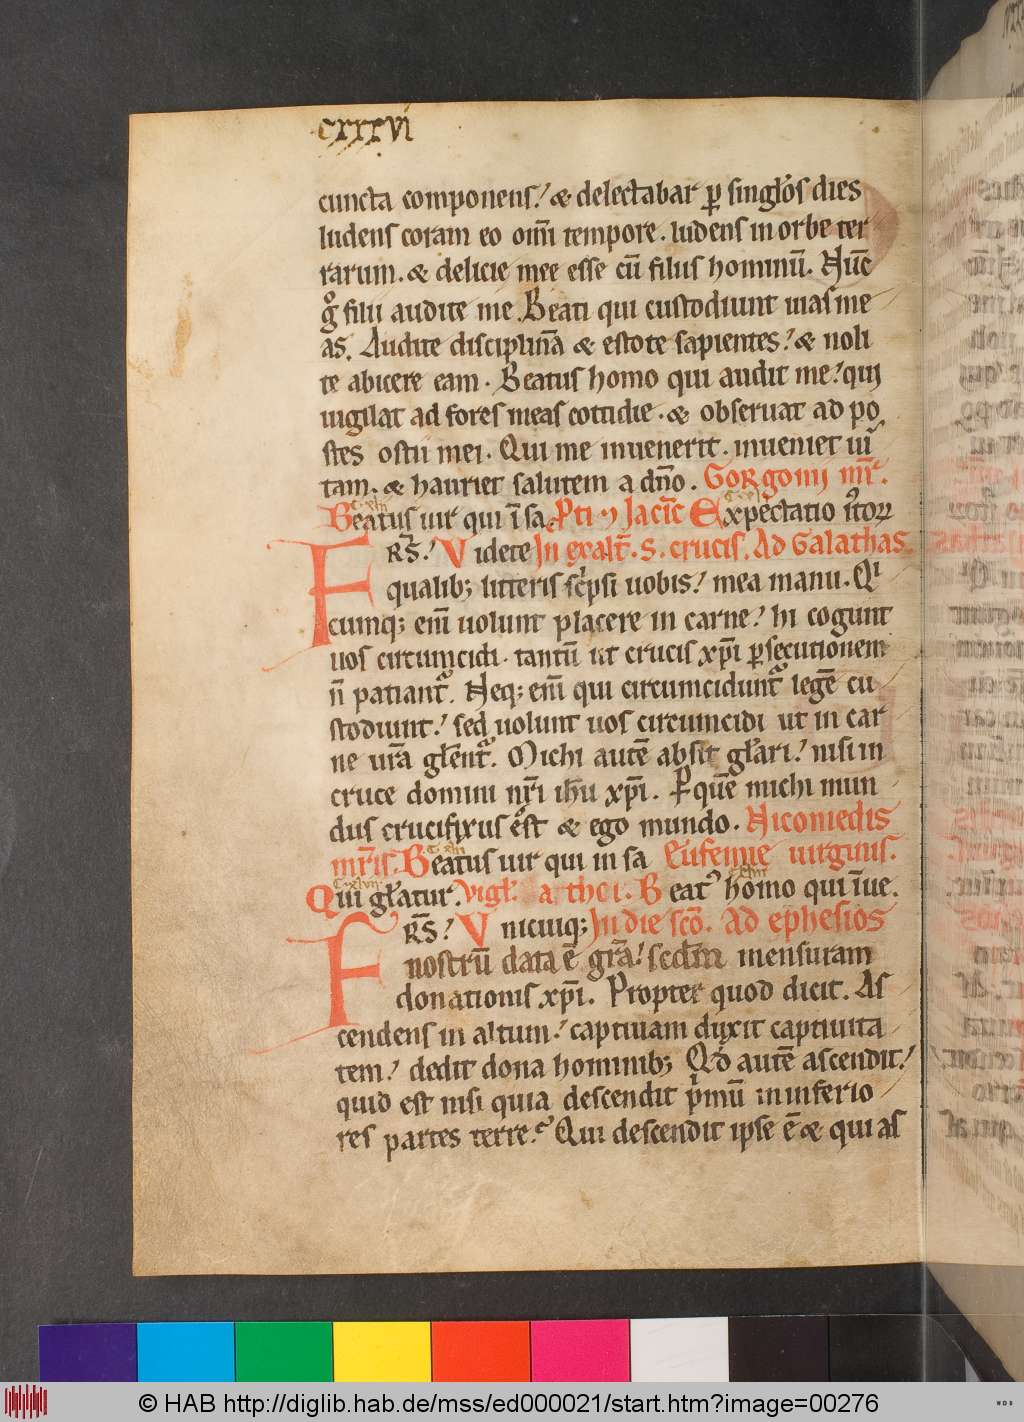 cxxxvi
cuncta componens. & delectabar ꝑ singl̓os dies
ludens coram eo om̅i tempore. ludens in orbe ter
rarum. & delicie mee esse cu̅ filiis hominu̅. Nu̅c
gͦ filii audite me. Beati qui custodiunt uias me
as. Audite disciplina̅ & estote sapientes. & noli
te abicere eam. Beatus homo qui audit me. qui
uigilat ad fores meas cottidie. & obseruat ad po
stes ostii mei. Qui me inuenerit. inueniet ui
tam. & hauriet salutem a dn̅o. Gorgonij mr̅.
Beatus uir qui i̅ sa. Pti Iaci̅c Expectatio
Fr̅s. Videte In exalt̅. S. crucis. Ad Galathas.
qualib; litteris sc̓psi uobis. mea manu. Qi
cumq; eni̅ uolunt placere in carne. hi cogunt
uos circumcidi. tantu̅ ut crucis xp̅i ꝑsecutionem
n̅ patiant᷑. Neq; eni̅ qui circumcidunt᷑ lege̅ cu
stodiunt. sed uolunt uos circumcidi ut in car
ne ur̅a gl̓ent᷑. Michi aute̅ absit gl̓ari. nisi in
cruce domini nr̅i ih̅u xp̅i. P que̅ michi mun
dus crucifixus est & ego mundo. Nicomedis
mr̅is. Beatus uir qui in sa Eufemie uirginis.
Qui gl̓atur. Vigl̓. a thei. Beatꝰ homo qui i̅ue.
Fr̅s. Vnicuiq; In die sc̅o. Ad ephesios
nostru̅ data e̅ gr̅a. sedm mensuram
donationis xp̅i. Propter quod dicit. As
cendens in altum. captiuam duxit captiuita
tem. dedit dona hominib; Qd̓ aute̅ ascendit.
quid est nisi quia descendit p̓mu̅ in inferio
res partes terre. Qui descendit ipse e̅ & qui as
© HAB http://diglib.hab.de/mss/ed000021/start.htm?image=00276